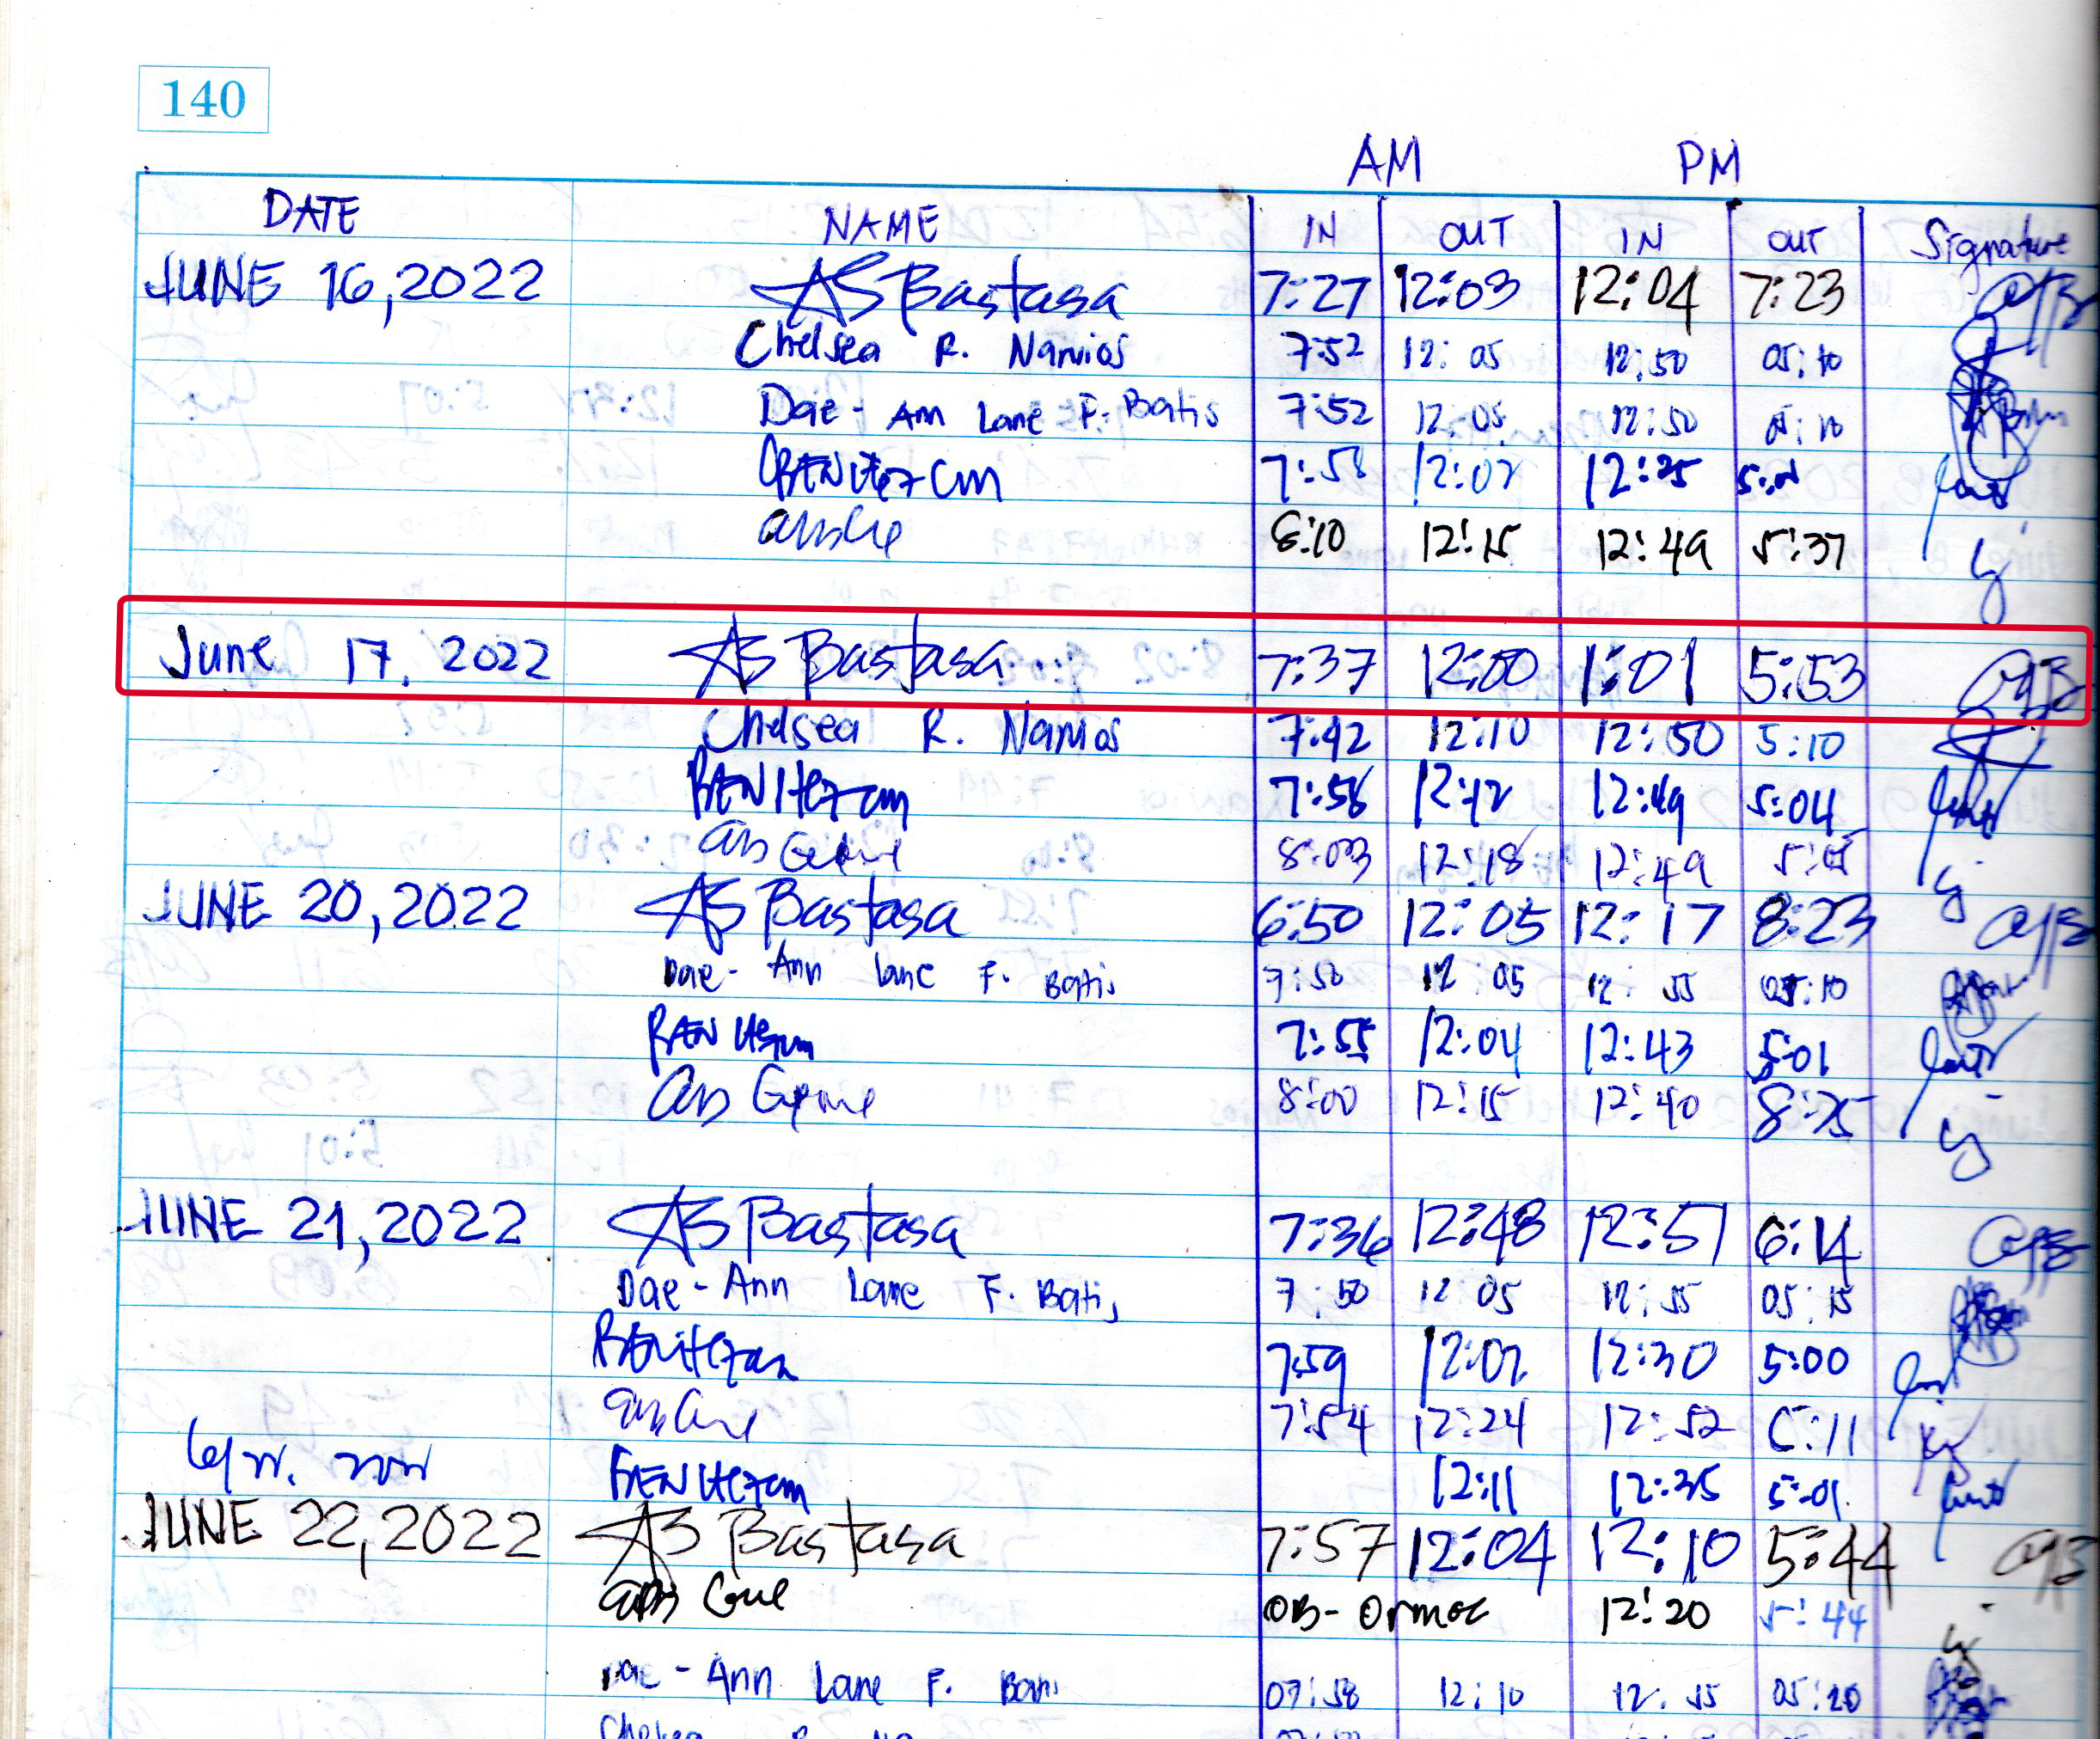 140
AM PM
DATE NAME IN OUT IN OUT Signature
JUNE 16, 2022 AS Bastasa 7:27 12:03 12:04 7:23
Chelsea R. Navios 7:52 12:05 12:50 05:10
Dae-Ann Lane F. Batis 7:52 12:05 12:50 05:10
BENITEZ CM 7:58 12:02 12:25 5:01
8:10 12:15 12:49 5:37
June 17, 2022 AS Bastasa 7:37 12:00 1:01 5:53
Chelsea R. Navios 7:42 12:10 12:50 5:10
BENITEZ CM 7:58 12:12 12:49 5:04
8:03 12:18 12:49
JUNE 20, 2022 AS Bastasa 6:50 12:05 12:17 8:23
Dae-Ann Lane F. Batis 7:50 12 05 12:55 05:10
BENITEZ CM 7:55 12:04 12:43 5:01
8:00 12:15 12:40 8:25
JUNE 21, 2022 AS Bastasa 7:36 12:48 12:51 6:14
Dae-Ann Lane F. Batis 7:50 12 05 12:55 05:15
BENITEZ CM 7:59 12:02 12:30 5:00
7:54 12:24 12:52 5:11
BENITEZ CM 12:11 12:35 5:01
JUNE 22, 2022 AS Bastasa 7:57 12:04 12:10 5:44
OB-Ormoc 12:20 5:44
Dae-Ann Lane F. Batis 07:58 12:10 12:55 05:20
Chelsea R.